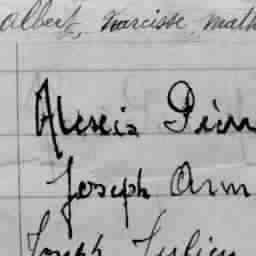 albert, narcisse, math
Alexis Pierr
Joseph Arm
Joseph Julien